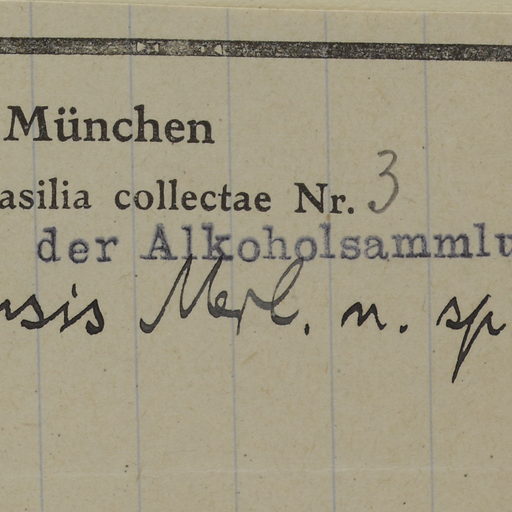 München
asilia collectae Nr. 3
der Alkoholsammlu
nsis Merl. n. sp